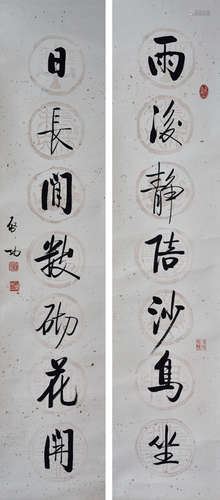 雨後靜陪沙鳥坐
日長閒數砌花開
啟功